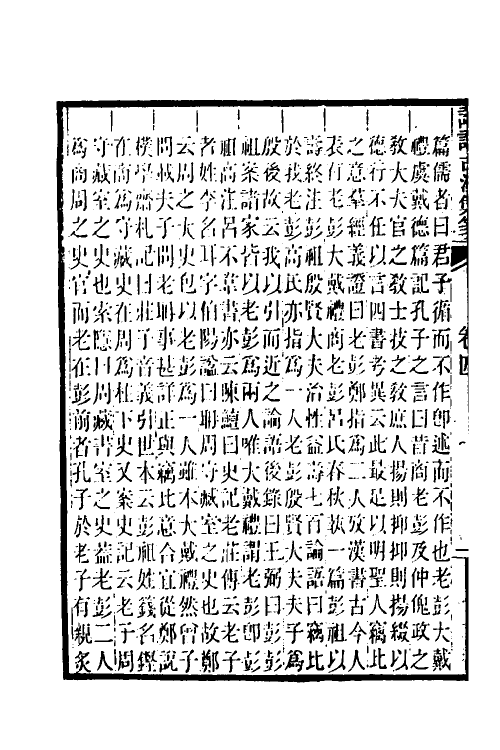 篇儒者曰君子循而不作卽述而不作也老彭大戴
禮虞戴德篇記孔子之言曰昔商老彭及仲傀政之
敎大夫官之敎士技之敎庶人揚則抑抑則揚綴以
德行不任以言四書考異云此最足以明聖人竊比
之意羣經義證曰老彭鄭指爲二人攷漢書古今人
表有老彭大戴禮商老彭呂氏春秋執一篇彭祖以
壽終注彭祖殷賢大夫治性益壽七百論語曰竊比
於我老彭高氏亦指爲一人老彭殷賢大夫夫子爲
殷後故云我以引而近之論語後錄曰王弼曰老彭
祖案諸家皆以老彭爲兩人唯大戴禮謂老彭卽彭
祖高注呂不韋書亦云陳鱣曰史記老莊傳云老子
者姓李名耳字伯陽諡曰聃周守藏室之史也故鄭
云周之大史包以老彭爲一人雖本大戴禮然曾子
問載夫子問老聃事甚詳正與竊比意合宜從鄭說
樸學齋札記曰莊子音義引世本云彭祖姓籛名鏗
在商爲守藏史在周爲柱下史又案史記云老子周
守藏室之史也索隱曰周藏書室之史葢老彭二人
爲商周之史官而老在彭前者孔子於老子有親炙
卷四